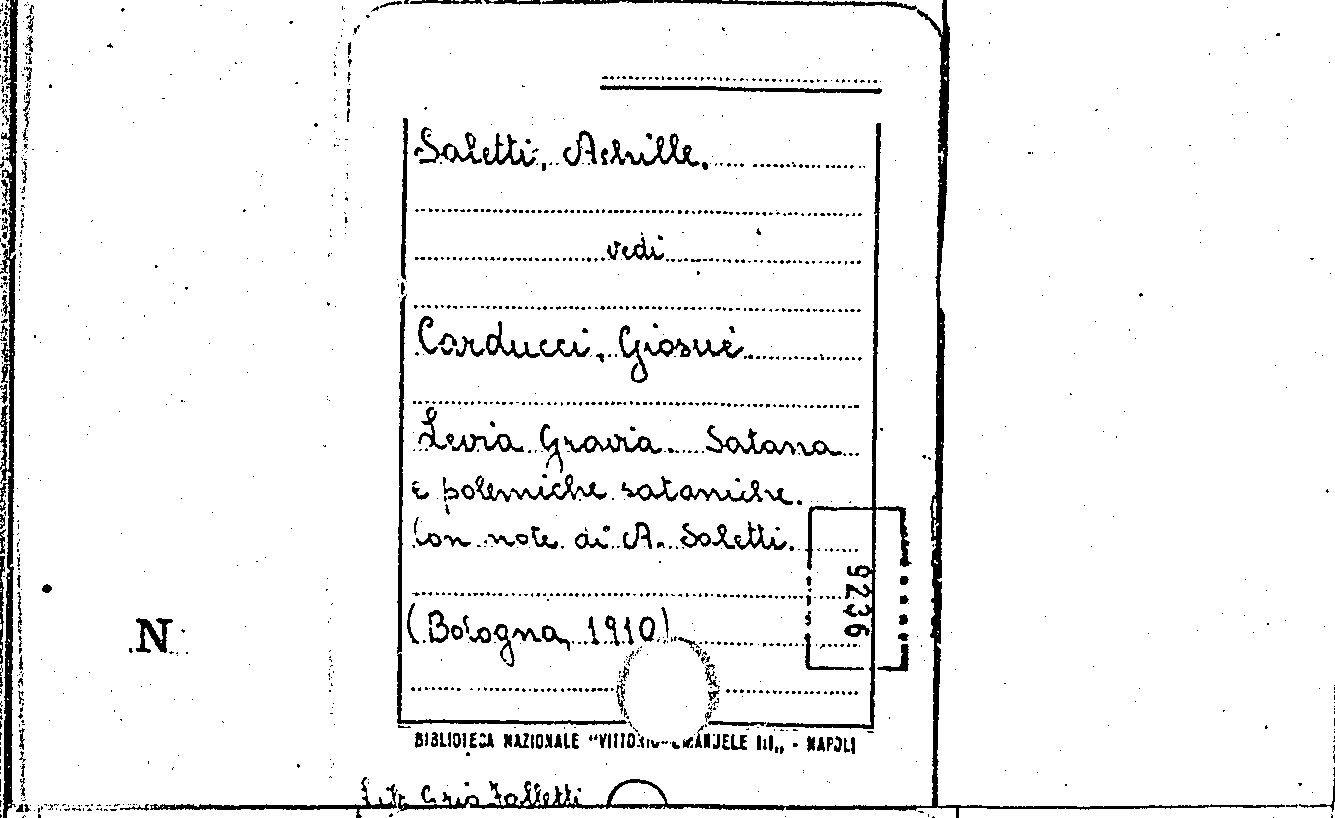 Saletti, Achille.
vedi
Carducci, Giosuè
Levia Gravia. Satana
e polemiche sataniche.
Con note di A. Saletti.
9236
(Bologna, 1910)
N
BIBLIOTECA NAZIONALE "VITTORIO EMANUELE III„ - NAPOLI